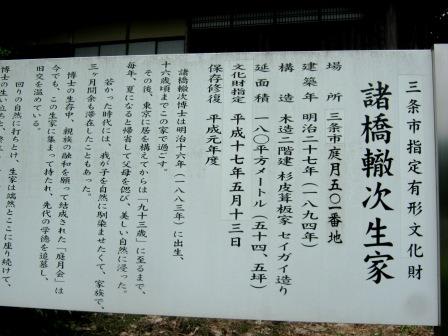 三条市指定有形文化財
諸橋轍次生家
場所 三条市庭月五〇一番地
建築年 明治二十七年(一八九四年)
構造 木造二階建 杉皮葺板家 セイガイ造り
延面積 一八〇平方メートル(五十四、五坪)
文化財指定 平成十七年五月十三日
保存修復 平成元年度
諸橋轍次博士は明治十六年(一八八三年)に出生、
十六歳頃までこの家で過ごす。
その後、東京に居を構えてからは「九十三歳」に至るまで、
毎年、夏になると帰省して父母を偲び、美しい自然に浸った。
若かった時代には、我が子を自然に馴染ませたくて、家族で、
三ヶ月間余も滞在したこともあった。
博士の生存中、親族の融和を願って結成された「庭月会」は
今でも、この生家に集まって持たれ、先代の学徳を追慕し、
旧交を温めている。
回りの自然に打ちとけ、生家は端然とここに座り続けて、
博士の生い立ちを